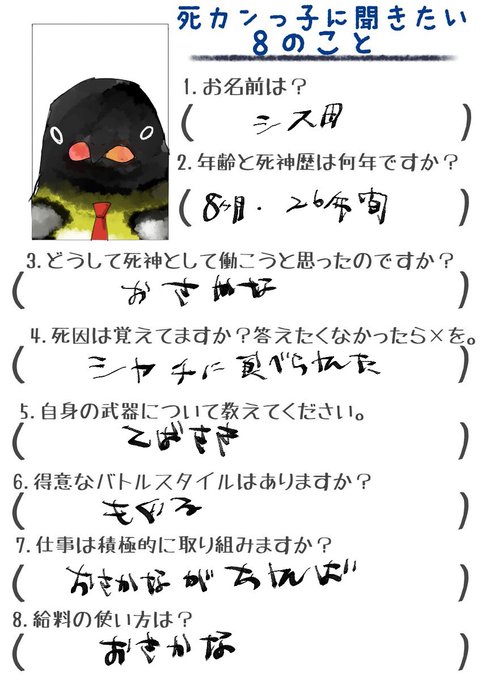 死カンっ子に聞きたい
8のこと
1.お名前は？
(シス田)
2.年齢と死神歴は何年ですか？
(8ヶ月・26年間)
3.どうして死神として働こうと思ったのですか？
(おさかな)
4.死因は覚えてますか？答えたくなかったら×を。
(シャチに食べられた)
5.自身の武器について教えてください。
(てばさき)
6.得意なバトルスタイルはありますか？
(もぐる)
7.仕事は積極的に取り組みますか？
(おさかながあれば)
8.給料の使い方は？
(おさかな)